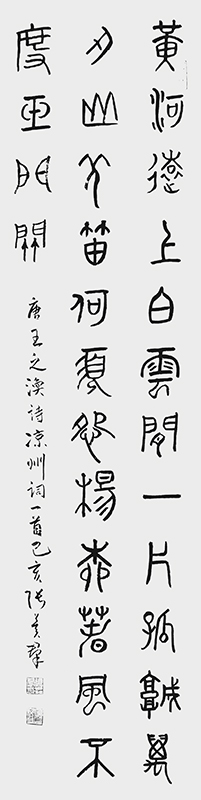 黃河遠上白雲間一片孤城萬
刃山羌笛何須怨楊柳春風不
度玉門關
唐王之渙詩凉州詞一首己亥張